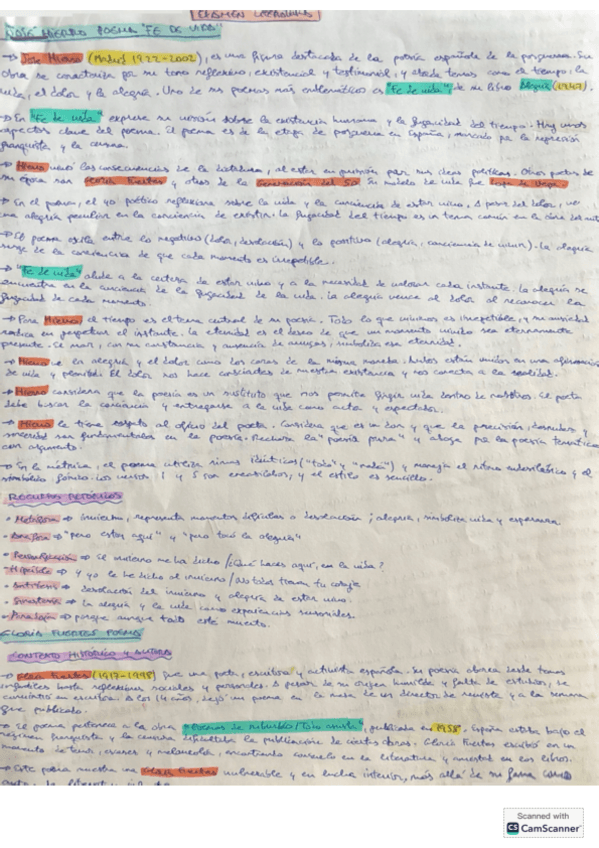 EXAMEN LITERATURA
JOSÉ HIERRO POEMA "FE DE VIDA"
→ José Hierro (Madrid 1922-2002), es una figura destacada de la poesía española de la posguerra. Su
obra se caracteriza por su tono reflexivo, existencial y testimonial, y aborda temas como el tiempo, la
vida, el dolor y la alegría. Uno de sus poemas más emblemáticos es "Fe de vida" de su libro Alegría (1947).
→ En "Fe de vida" expresa su visión sobre la existencia humana y la fugacidad del tiempo. Hay varios
aspectos clave del poema. El poema es de la etapa de posguerra en España, marcado por la represión
franquista y la censura.
→ Hierro vivió las consecuencias de la dictadura, al estar en prisión por sus ideas políticas. Otros poetas de
su época son Gloria Fuertes y otros de la Generación del 50. Su modelo de vida fue Lope de Vega.
→ En el poema, el yo poético reflexiona sobre la vida y la conciencia de estar vivo. A pesar del dolor,
una alegría peculiar en la conciencia de existir. La fugacidad del tiempo es un tema común en la obra del
→ El poema oscila entre lo negativo (dolor, desolación) y lo positivo (alegría, conciencia de vivir). La alegría
surge de la conciencia de que cada momento es irrepetible.
→ "Fe de vida" alude a la certeza de estar vivo y a la necesidad de valorar cada instante. La alegría se
encuentra en la conciencia de la fugacidad de la vida. La alegría vence al dolor al reconocer la
fugacidad de cada momento.
→ Para Hierro, el tiempo es el tema central de su poesía. Todo lo que vivimos es irrepetible, y su ansiedad
radica en perpetuar el instante. La eternidad es el deseo de que un momento vivido sea eternamente
presente. El mar, con su constancia y ausencia de arrugas, simboliza esa eternidad.
→ Hierro ve la alegría y el dolor como dos caras de la misma moneda. Ambos están unidos en una afirmación
de vida y plenitud. El dolor nos hace conscientes de nuestra existencia y nos conecta a la realidad.
→ Hierro considera que la poesía es un instituto que nos permite fingir vida dentro de nosotros. El poeta
debe buscar la conciencia y entregarse a la vida como actor y espectador.
→ Hierro le tiene respeto al oficio del poeta. Considera que es un don y que la precisión, desnudez y
sinceridad son fundamentales en la poesía. Rechaza la "poesía pura" y aboga por la poesía temática
con argumento.
→ En la métrica, el poema utiliza rimas idénticas ("todo" y "nada") y maneja el ritmo eneasilábico y el
simbolismo fónico. Los versos 1 y 5 son eneasílabos, y el estilo es sencillo.
RECURSOS RETÓRICOS
• Metáfora → invierno, representa momentos difíciles o desolación; alegría, simboliza vida y esperanza
• Anáfora → "pero estoy aquí" y "pero toco la alegría"
• Personificación → El invierno me ha dicho / ¿Qué haces aquí, en la vida?
• Hipérbole → y yo le he dicho al invierno / No todos traman tu coraje
• Antítesis → desolación del invierno y alegría de estar vivo.
• Sinestesia → la alegría y la vida como experiencias sensoriales.
• Paradoja → porque aunque todo esté muerto.
GLORIA FUERTES POEMA
CONTEXTO HISTÓRICO Y AUTORA
→ Gloria Fuertes (1917-1998) fue una poeta, escritora y activista española. Su poesía abarca desde temas
infantiles hasta reflexiones sociales y personales. A pesar de su origen humilde y falta de estudios, se
convirtió en escritora. A los 14 años, dejó un poema en la mesa de un director de revista y a la semana
fue publicado.
→ El poema pertenece a la obra "Poemas de suburbio/Todo asusta", publicada en 1958. España estaba bajo el
régimen franquista y la censura dificultaba la publicación de ciertas obras. Gloria Fuertes escribió en un
momento de temor, crisis y melancolía, encontrando consuelo en la literatura y amistad en los libros.
→ Este poema muestra una Gloria Fuertes vulnerable y en lucha interior, más allá de su fama como
Scanned with
CS CamScanner